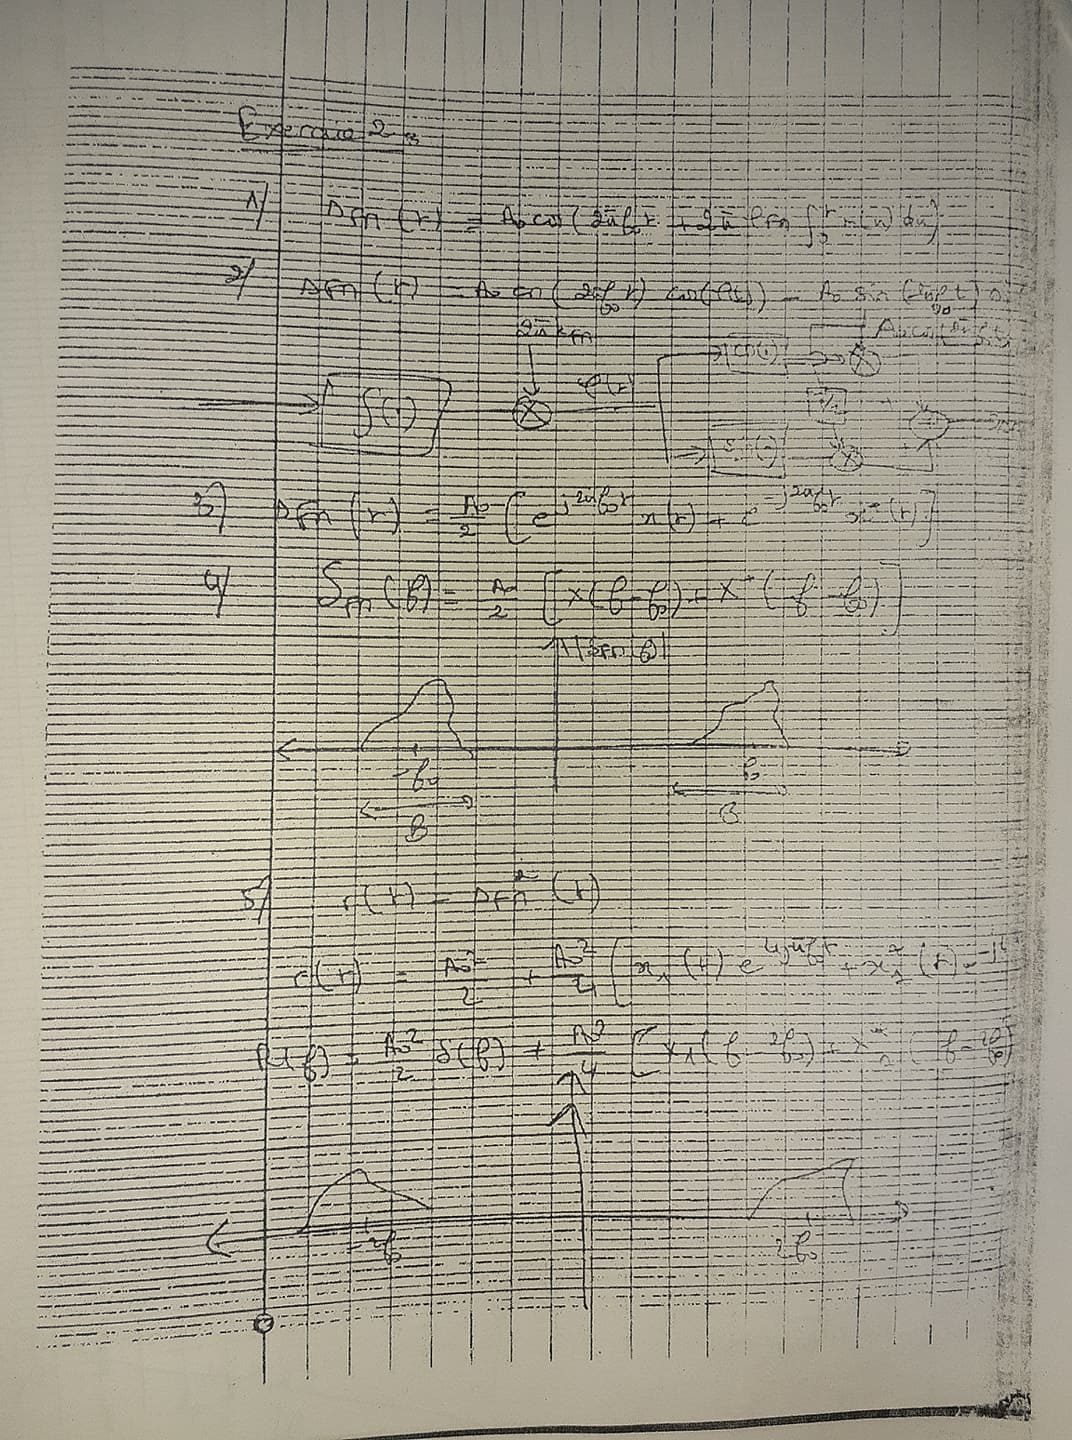 Exercice 2
1/ s_fm(t) = A0 cos(2πf0t + 2π kfm ∫_0^t m(u) du)
2/ s_fm(t) = A0 cos(2πf0t) cos( ) - A0 sin(2πf0t)
2π kfm
A0 cos(2πf0t)
cos(.)
∫(.)
φ(t)
sin(.)
3/ s_fm(t) = A0/2 [e^{j2πf0t} x(t) + e^{-j2πf0t} x*(t)]
4/ S_fm(f) = A0/2 [X(f-f0) + X*(-f-f0)]
|Sfm(f)|
-f0 f0
B B
5/ r(t) = s_fm²(t)
r(t) = A0²/2 + A0²/4 [x1(t) e^{4jπf0t} + x1*(t)
R(f) = A0²/2 δ(f) + A0²/4 [X1(f-2f0) + X1*(-f-2f0)
-2f0 2f0